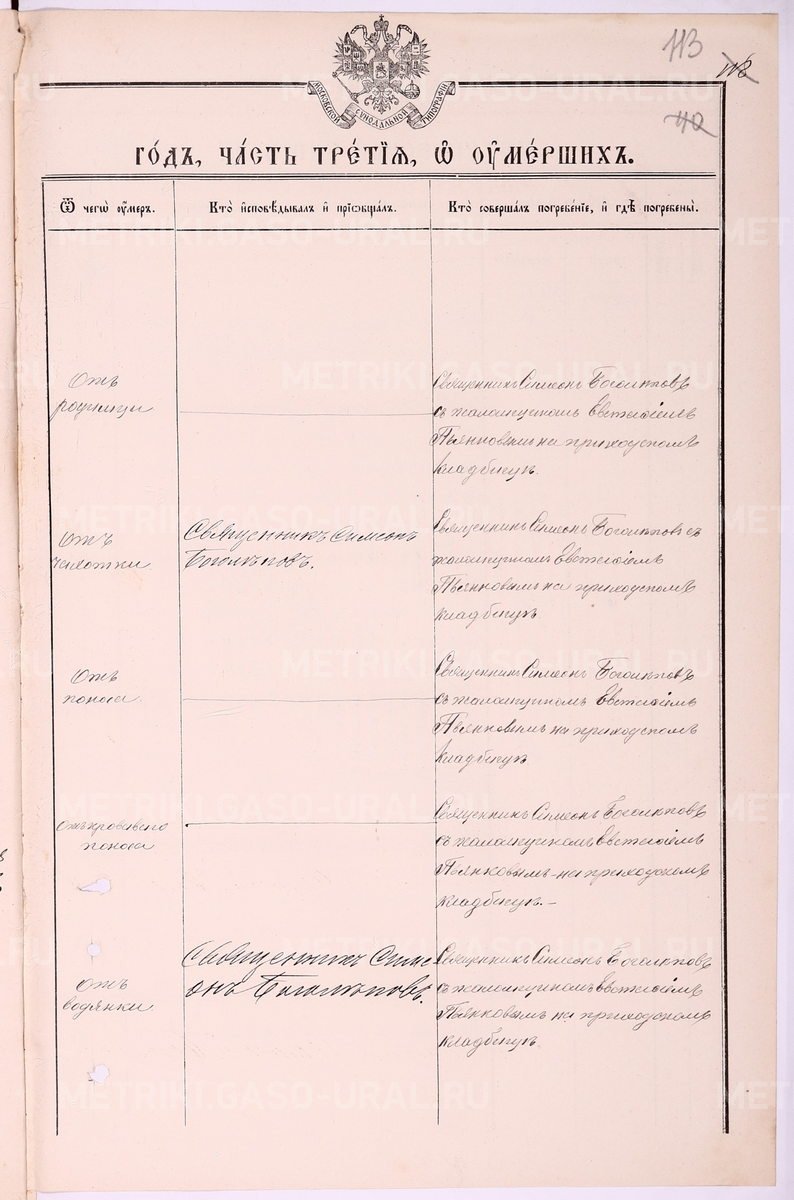 113
118
110
МОСКОВСКОЙ СѴНОДАЛЬНОЙ ТИПОГРАФІИ
ГО́ДЪ, ЧА́СТЬ ТРЕ́ТІѦ, Ѡ҆ ОУ҆МЕ́РШИХЪ.
Ѿ чегѡ̀ оу҆́меръ.
Кто̀ и҆сповѣ́дывалъ и҆ прїѡбща́лъ.
Кто̀ соверша́лъ погребе́нїе, и҆ гдѣ̀ погребены̀.
Отъ
родимца
Священникъ Симеонъ Боголѣповъ
съ псаломщикомъ Евгеніемъ
Пьянковымъ на приходскомъ
кладбищѣ.
Отъ
чахотки
Священникъ Симеонъ
Боголѣповъ.
Священникъ Симеонъ Боголѣповъ съ
псаломщикомъ Евгеніемъ
Пьянковымъ на приходскомъ
кладбищѣ.
Отъ
поноса
Священникъ Симеонъ Боголѣповъ
съ псаломщикомъ Евгеніемъ
Пьянковымъ на приходскомъ
кладбищѣ.
Отъ кроваваго
поноса
Священникъ Симеонъ Боголѣповъ
съ псаломщикомъ Евгеніемъ
Пьянковымъ на приходскомъ
кладбищѣ.-
Отъ
водянки
Священникъ Симе
онъ Боголѣповъ.
Священникъ Симеонъ Боголѣповъ
съ псаломщикомъ Евгеніемъ
Пьянковымъ на приходскомъ
кладбищѣ.
METRIKI.GASO-URAL.RU